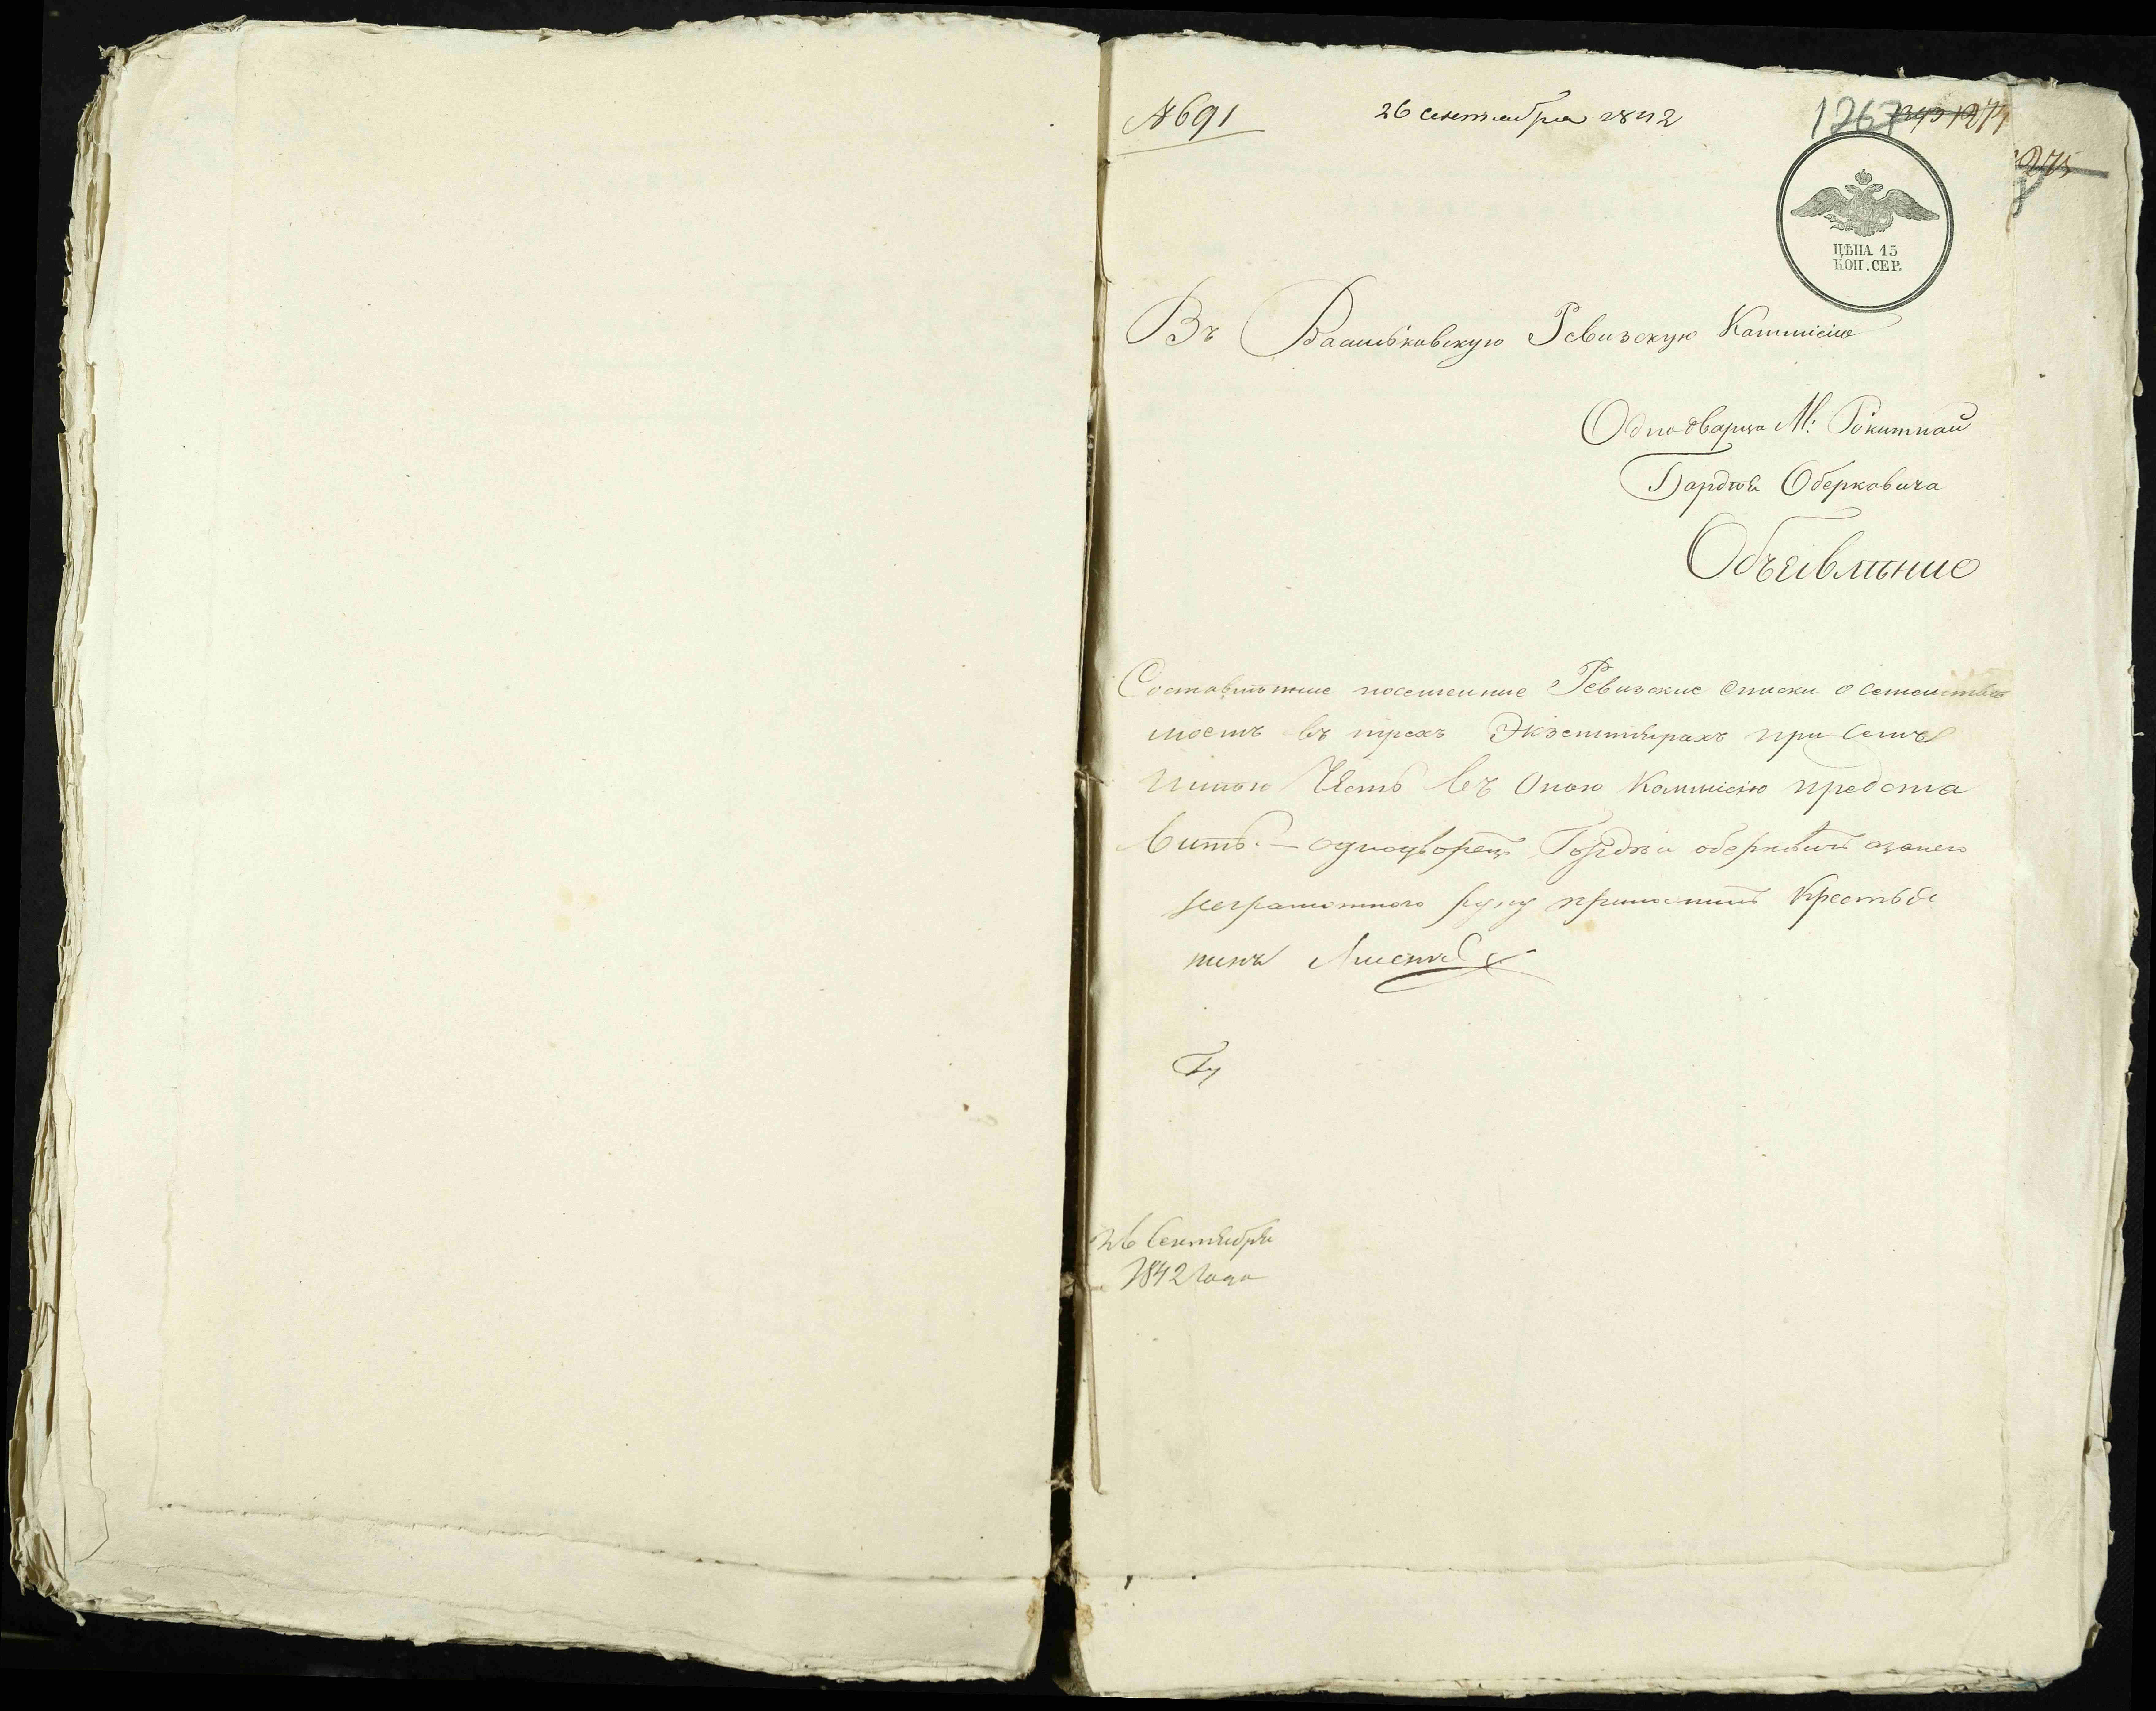 № 691
26 сентября 1842
1267
1275
ЦѢНА 15
КОП. СЕР.
Въ Васильковскую Ревизскую Коммисію
Однодварца М: Рокитнай
Гардѣя Оберковича
Объявлѣние
Составлѣнние посемение Ревизские списки о семействѣ
моемъ въ трехъ Экземплярахъ при семъ
имѣю Честь въ Оною Коммисію предста
вить. – однодворецъ Гордѣй оберковичъ а занего
неграмотного руку приложилъ Крестья
нинъ
Гу
26 Сентября
1842 года